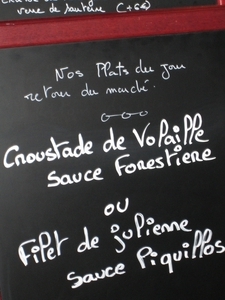 verre de Sauterne (+6€)
Nos Plats du jour
retour du marché.
Croustade de Volaille
Sauce Forestière
ou
Filet de julienne
Sauce Piquillos